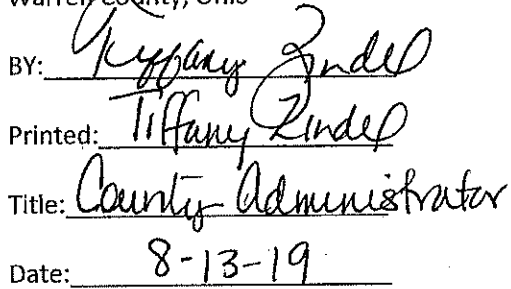 Warren County, Ohio
BY: Tiffany Zindel
Printed: Tiffany Zindel
Title: County Administrator
Date: 8-13-19